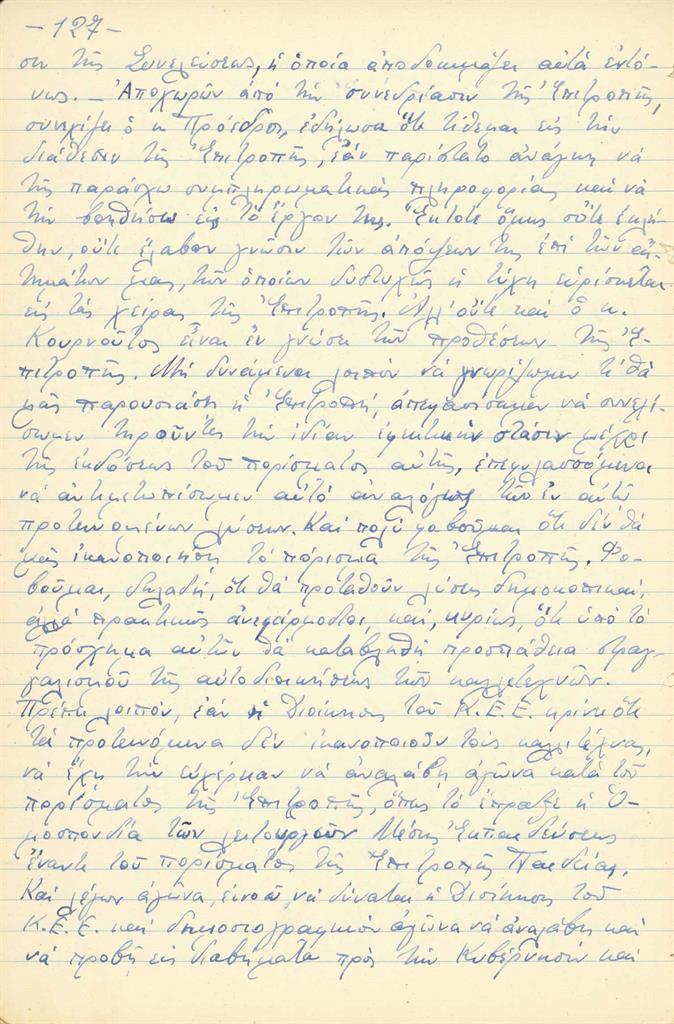 -127-
σιν τῆς Συνελεύσεως, ἡ ὁποία ἀποδοκιμάζει αὐτά ἐντό-
νως. — Ἀποχωρῶν ἀπό τήν συνεδρίασιν τῆς Ἐπιτροπῆς,
συνεχίζει ὁ κ. Πρόεδρος, ἐδήλωσα ὅτι τίθεμαι εἰς τήν
διάθεσιν τῆς Ἐπιτροπῆς, ἐάν παρίστατο ἀνάγκη νά
τῆς παράσχω συμπληρωματικάς πληροφορίας καί νά
τήν βοηθήσω εἰς τό ἔργον της. Ἔκτοτε ὅμως οὔτε ἐκλή-
θην, οὔτε ἔλαβον γνῶσιν τῶν ἀπόψεων της ἐπί τῶν ζη-
τημάτων μας, τῶν ὁποίων δυστυχῶς ἡ τύχη εὑρίσκεται
εἰς τάς χεῖρας τῆς Ἐπιτροπῆς. Ἀλλ' οὔτε καί ὁ κ.
Κουρνοῦτος εἶναι ἐν γνώσει τῶν προθέσεων τῆς Ἐ-
πιτροπῆς. Μή δυνάμενοι λοιπόν νά γνωρίζωμεν τί θά
μᾶς παρουσιάσῃ ἡ Ἐπιτροπή, ἀπεφασίσαμεν νά συνεχί-
σωμεν τηροῦντες τήν ἰδίαν ἐφεκτικήν στάσιν μέχρι
τῆς ἐκδόσεως τοῦ πορίσματος αὐτῆς, ἐπιφυλασσόμενοι
νά ἀντιμετωπίσωμεν αὐτό ἀναλόγως τῶν ἐν αὐτῷ
προτεινομένων λύσεων. Καί πολύ φοβοῦμαι ὅτι δέν θά
μᾶς ἱκανοποιήσῃ τό πόρισμα τῆς Ἐπιτροπῆς. Φο-
βοῦμαι, δηλαδή, ὅτι θά προταθοῦν λύσεις δημοκοπικαί,
ἀλλά πρακτικῶς ἀνεφάρμοστοι, καί, κυρίως, ὅτι ὑπό τό
πρόσχημα αὐτῶν θά καταβληθῇ προσπάθεια στραγ-
γαλισμοῦ τῆς αὐτοδιοικήσεως τῶν καλλιτεχνῶν.
Πρέπει λοιπόν, ἐάν ἡ Διοίκησις τοῦ Κ.Ε.Ε. κρίνῃ ὅτι
τά προτεινόμενα δέν ἱκανοποιοῦν τούς καλλιτέχνας,
νά ἔχῃ τήν εὐχέρειαν νά ἀναλάβῃ ἀγῶνα κατά τοῦ
πορίσματος τῆς Ἐπιτροπῆς, ὅπως τό ἔπραξε ἡ Ὁ-
μοσπονδία τῶν Λειτουργῶν Μέσης Ἐκπαιδεύσεως
ἔναντι τοῦ πορίσματος τῆς Ἐπιτροπῆς Παιδείας.
Καί λέγων ἀγῶνα, ἐννοῶ, νά δύναται ἡ Διοίκησις τοῦ
Κ.Ε.Ε. καί δημοσιογραφικόν ἀγῶνα νά ἀναλάβῃ καί
νά προβῇ εἰς διαβήματα πρός τήν Κυβέρνησιν καί